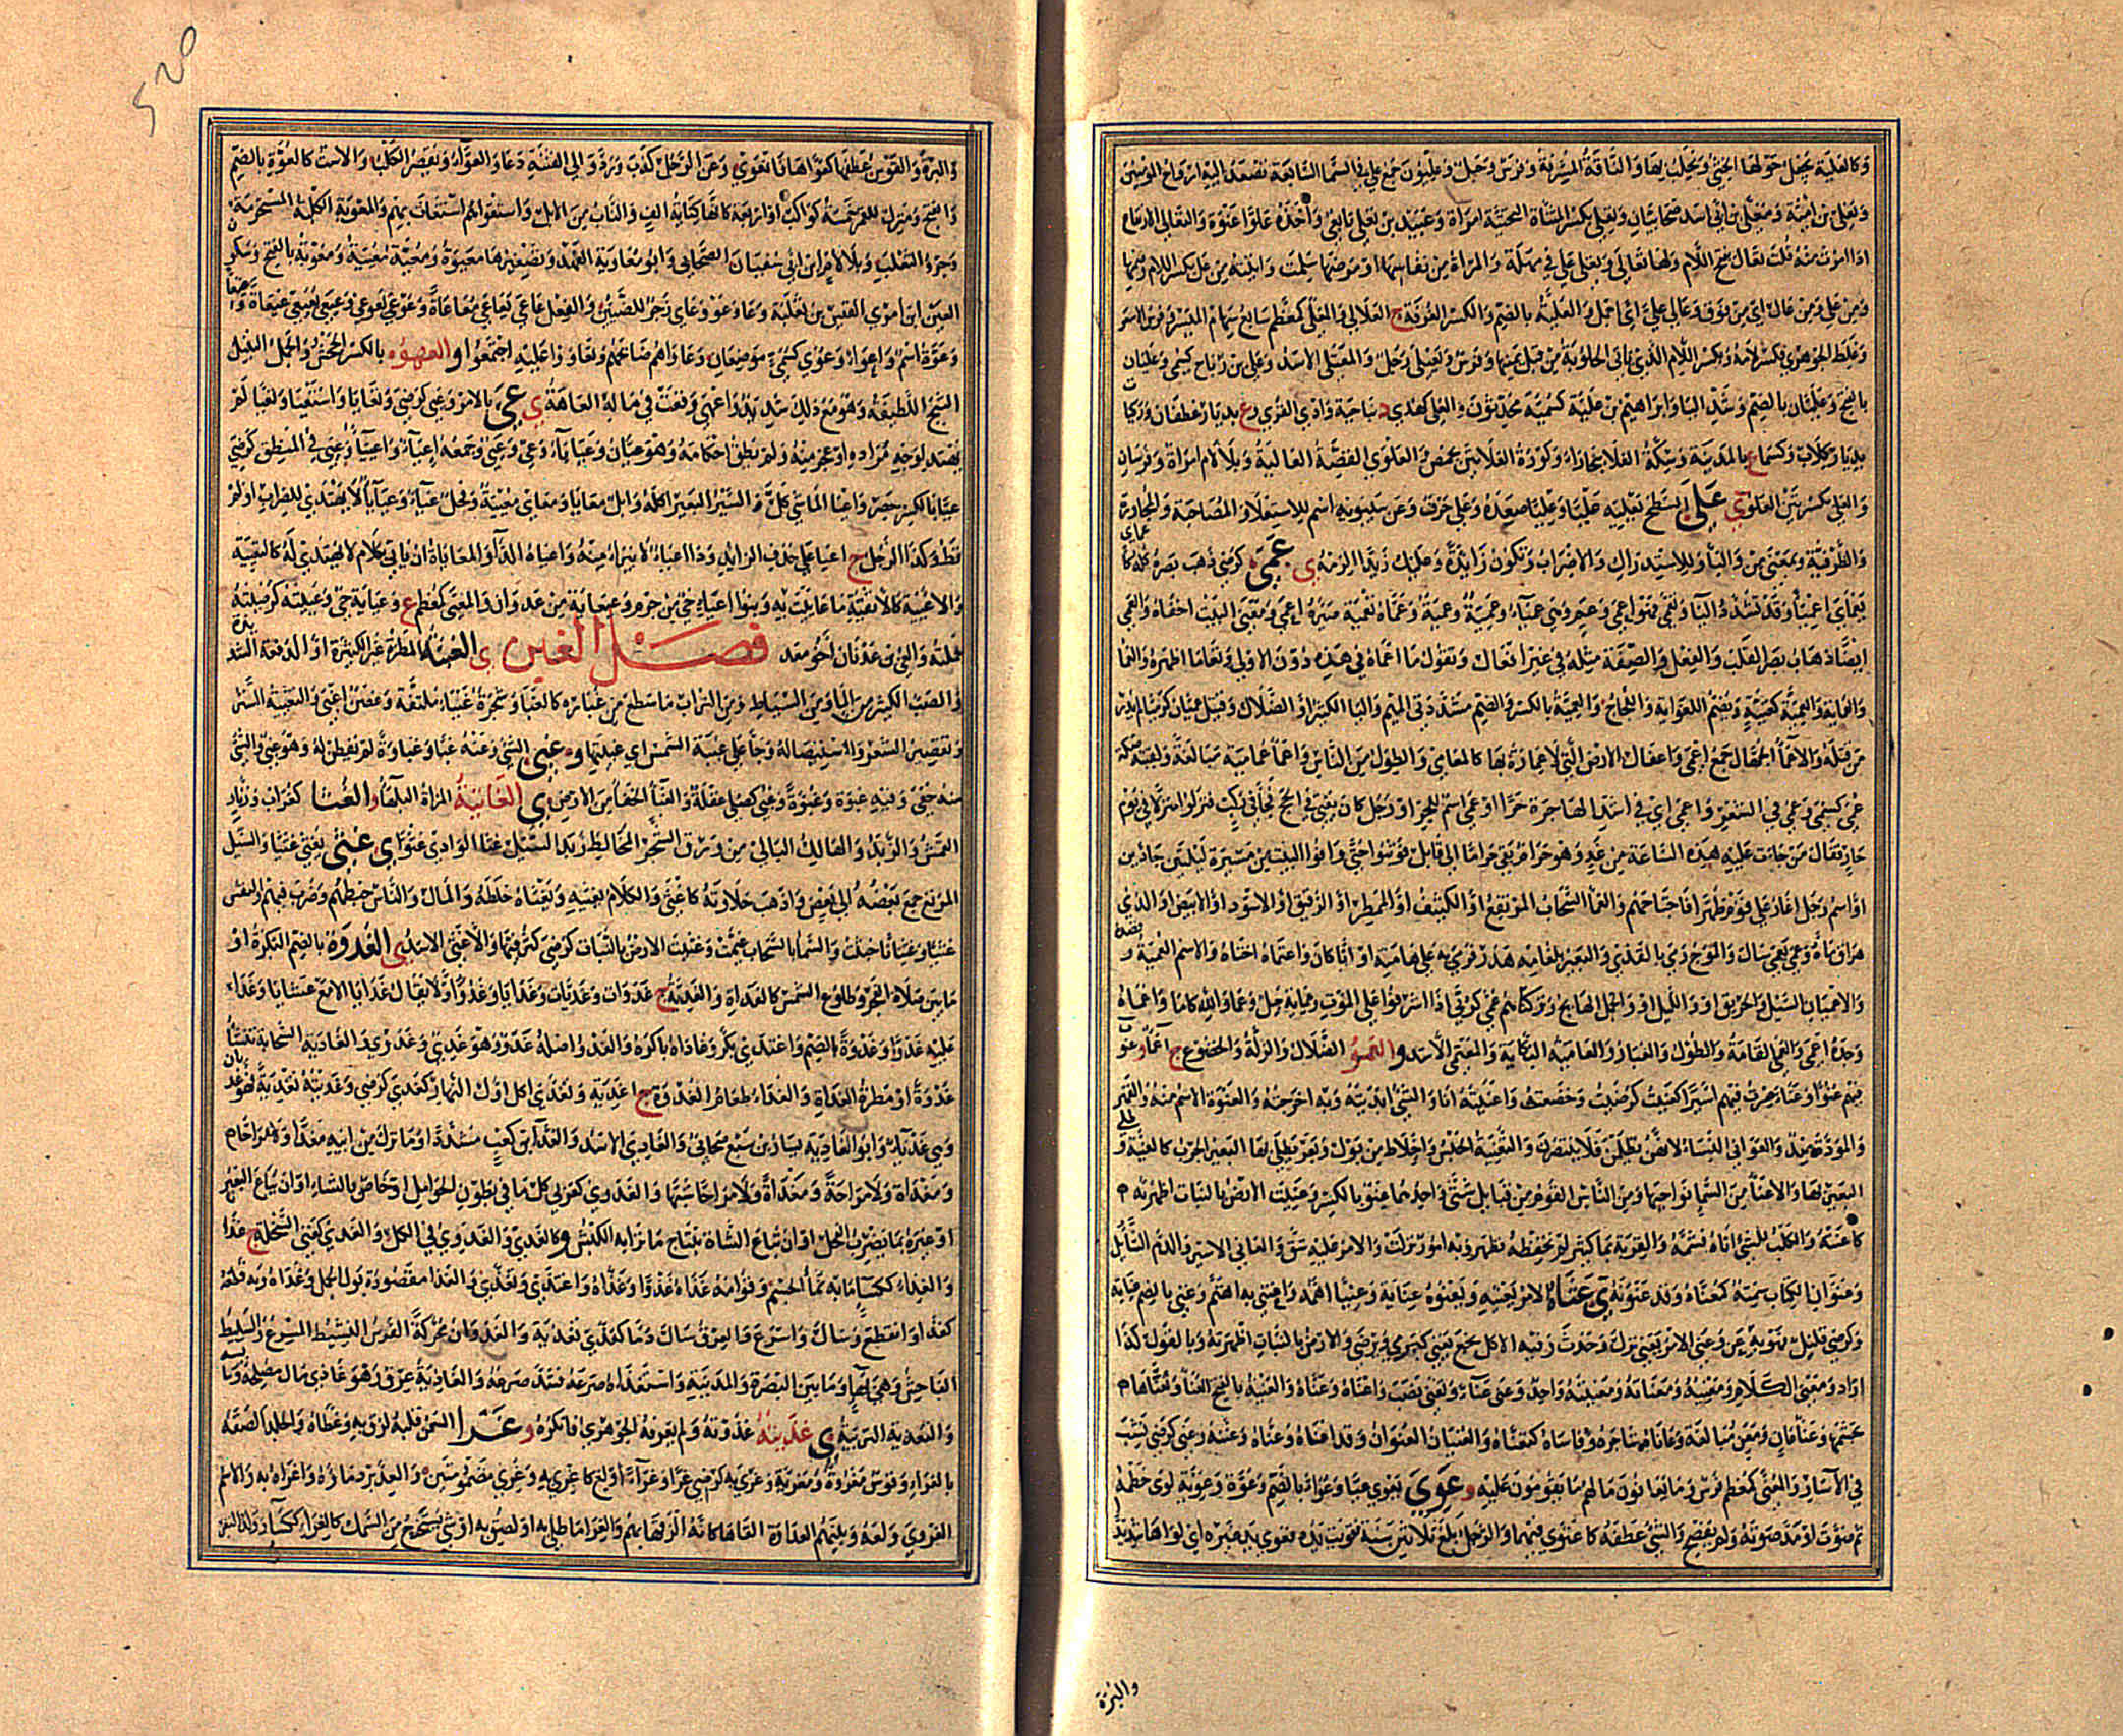 وكالعلية يجعل حولها الخثي ويحلب بها والناقة المشرفة وفرس وجبل وعليون جمع علي في السماء السابعة تصعد اليه ارواح المؤمنين
ويعلى بن امية ومعلى بن اسد صحابيان ويعلي بكسر المثناة التحتية امراة وعبيد بن يعلى تابعي واخذه علوا عنوة والتعالي الارتفاع
اذا امرت منه قلت تعال بفتح اللام ولها تعالي وتعلى علي في مهلة والمراة من نفاسها او مرضها سلمت واتيته من عل بكسر اللام وضمها
ومن علي ومن عال اي من فوق وعالي علي اي احمل والعلية بالضم والكسر الغرفة ج العلالي والمعلى كمعظم سابع سهام الميسر وفرس الاسعر
وغلط الجوهري فكسر لامه وبكسر اللام الذي ياتي الحلوبة من قبل يمينها وفرس وتعيلى رجل والمعتلي الاسد وعلي بن رباح كسمي وعليان
بالفتح وعليان بالضم وشد الياء وابراهيم بن علية كسمية محدثون والعلى كهدى د بناحية وادي القرى وع بديار غطفان وركيات
بديار كلاب وكسماء ع بالمدينة وسكة العلاء ببخاراء وكورة العلاتين بحمص والعلوي القصة العالية وبلا لام امراة وفرسان
والعلي بكسرتين العلو ي على السطح يعليه عليا وعليا صعده وعلى حرف وعن سيبويه اسم للاستعلاء والمصاحبة والمجاوزة
والظرفية وبمعنى من والباء وللاستدراك والاضراب وتكون زايدة وعليك زيدا الزمه ي عمي كرضي ذهب بصره كله كاعماي
يعماي اعمياء وقد تشدد الياء وتعمى فهو اعمى وعم وهي عمياء وعمية وعمية وعماه تعمية صيره اعمى ومعنى البيت اخفاه والعمى
ايضا ذهاب بصر القلب والفعل والصفة مثله في غير افعال وتقول ما اعماه في هذه دون الاولى وتعامى اظهره والعماء
والعماية والعمية كغنية وتضم الغواية واللجاج والعمية بالكسر والضم مشددتي الميم والياء الكبر او الضلال وقتيل عميا كرميا لم يدر
من قتله والاعماء الجهال جمع اعمى واغفال الارض التي لا عمارة بها كالمعامي والطوال من الناس واعماء عامية مبالغة ولقيته صكة
عمي كسمي وعمي في الشعر واعمى اي في اشد الهاجرة حرا او عمي اسم للحر او رجل كان يفتي في الحج فجاء في ركب فنزلوا منزلا في يوم
حار فقال من جاءت عليه هذه الساعة من غد وهو حرام بقي حراما الى قابل فوثبوا حتى وافوا البيت من مسيرة ليلتين جادين
او اسم رجل اغار على قوم ظهرا فاجتاحهم والعماء السحاب المرتفع او الكثيف او الممطر او الرقيق او الاسود او الابيض او الذي
هراق ماءه وعمى يعمي سال والموج رمى بالقذى والبعير بلغامه هدر فرمى به على هامته او ايا كان واعتماه اختاره والاسم العمية و
والاعميان السيل والحريق او والليل او والجمل الهايج وتركناهم عمى كربى اذا اشرفوا على الموت وعماية جبل وعما والله كاما واعماه
وجده اعمى والعمى القامة والطول والغبار والعامية البكاية والمعتمي الاسد و العمو الضلال والذلة والخضوع ج اعماء و عنوت
فيهم عنوا وعناء صرت فيهم اسيرا كعنيت كرضيت وخضعت واعنيته انا والشيء ابديته وبه اخرجته والعنوة الاسم منه والقهر
والمودة ضد والعواني النساء لانهن يظلمن فلا ينتصرن والتعنية الحبس واخلاط من بول وبعر يطلى بها البعير الجرب كالعنية و
البعير بها والاعناء من السماء نواحيها ومن الناس القوم من قبايل شتى واحدهما عنو بالكسر وعنيت الارض بالنبات اظهرته
كاعنته والكلب للشيء اتاه فشمه والقربة بماء كثير لم تحفظه فظهر وبه امور نزلت والامر عليه شق والعاني الاسير والدم السايل
وعنوان الكتاب سمته كعناه وقد عنونه ي عناه الامر يعنيه ويعنوه عناية وعنيا اهمه واعتنى به اهتم وعني بالضم عناية
وكرضي قليل فهو به عن وعنى الامر يعني نزل وحدث وفيه الاكل نجع يعنى كيرمي ويرضى والارض بالنبات اظهرته وبالقول كذا
اراد ومعنى الكلام ومعنيه ومعناته ومعنيته واحد وعني عناء وتعنى نصب واعناه وعناه والعنية بالفتح العناء وتعناها
تجشمها وعناء عان ومعن مبالغة وعاناه شاجره وقاساه كتعناه والعنيان العنوان وقد اعناه وعناه وعننه وعني كرضي نشب
في الاسار والمعنى كمعظم فرس وما يعانون مالهم ما يقومون عليه و عوى يعوي عيا وعواء بالضم وعوة وعوية لوى خطمه
ثم صوت او مد صوته ولم يفصح والشيء عطفه كاعتوى فيهما والرجل بلغ ثلاثين سنة فقويت يده فعوى يد غيره اي لواها شديدا
والبرة
والبرة والقوس عطفها كعواها فانعوى وعن الرجل كذب ورد والى الفتنة دعا والعواء ويقصر الكلب والاست كالعوة بالضم
والفتح ومنزل للقمر خمسة كواكب او اربعة كانها كتابة الف والناب من الابل واستعواهم استغاث بهم والمعاوية الكلبة المستحرمة
وجرو الثعلب وبلا لام ابن ابي سفيان الصحابي وابو معاوية الفهد وتصغيرها معيوية ومعية معيية ومعوية بالفتح وسكون
العين ابن امرئ القيس بن ثعلبة وعا وعو وعاي زجر للضئين والفعل عاعى يعاعي معاعاة وعوعى يعوعي وعيعى يعيعي عيعاة و
وعوة اسم واعواء وعوي كسمي موضعان وعاواهم ضاغاهم وتعاووا عليه اجتمعوا و العهو بالكسر الجحش والجمل النبيل
الثبج اللطيفة وهو مع ذلك شديد واعهى وقعت في ماله العاهة ي عي بالامر وعيي كرضي وتعايا واستعيا وتعيا لم
يهتد لوجه مراده او عجز منه ولم يطق احكامه وهو عيان وعياياء وعي وعيي وجمعه اعياء واعيياء وعيي في المنطق كرضي
عيا بالكسر حصر واعيا الماشي كل والسير البعير اكله وابل معايا ومعاي معيية وفحل عياء وعياياء لا يهتدي للضراب او لم
يضرب قط وكذا الرجل ج اعياء على حذف الزايد وداء عياء لا يبرا منه واعياه الداء والمعاياة ان ياتي بكلام لا يهتدى له كالتعيية
والاعيية كالاثفية ما عاييت به وبنو اعياء حي من جرم وعيعاية من عدوان والمعي كمعظم ع وعياية حي وعييته كرضيته
جهلته والعي بن عدنان اخو معد فصل الغين ي الغبية المطرة غير الكثيرة او الدفعة الشديدة
والصب الكثير من الماء ومن السياط ومن التراب ما سطع من غباره كالغباء وشجرة غبياء ملتفة وغصن اغبى والتغبية الستر
وتقصير الشعر والاستيصال له وجاء على غبية الشمس اي غيبتها و غبي الشيء وعنه غبا وغباوة لم يفطن له وهو غبي والشيء
منه خفي وفيه غبوة وغبوة وغبي كصلي غفلة والغباء الخفاء من الارض ي الغاتية المراة البلهاء و الغثاء كغراب وزنار
القمش والزبد والهالك البالي من ورق الشجر المخالط زبد السيل غثا الوادي غثوا ي غثى يغثي غثيا والسيل
المرتع جمع بعضه الى بعض واذهب حلاوته كاغثى والكلام يغثيه ويغثاه خلطه والمال والناس خبطهم وضرب فيهم والنفس
غثيا وغثيانا خبثت والسماء بالسحاب غيمت وغثيت الارض بالنبات كرضي كثر فيها والاغثى الاسد ي الغدوة بالضم البكرة او
ما بين صلاة الفجر وطلوع الشمس كالغداة والغدية ج غدوات وغديات وغدايا وغدو او لا يقال غدايا الا مع عشايا وغدا
عليه غدوا وغدوة بالضم واغتدى بكر وغاداه باكره والغد اصله غدو وهو غدي وغدوي والغادية السحابة تنشا
غدوة او مطرة الغداة والغداء طعام الغدوة ج اغدية وتغدى اكل اول النهار كغدي كرضي وغديته تغدية فهو غديان
وهي غديا وابو الغادية يسار بن سبع صحابي والغادي الاسد والغداء ابن كعب مشدد او ما ترك من ابيه مغدا ولا مراحا
ومغداة ولا مراحة ومغداة ولا مراحا شبها والغدوي كعربي كل ما في بطون الحوامل او خاص بالشاء او ان يباع البعير
او غيره بما يضرب الفحل او ان تباع الشاة بنتاج ما نزا به الكبش و كالغذي والغذوي في الكل والغذي كغني السخلة ج غذاء
والغذاء ككساء ما به نماء الجسم وقوامه غذاه غذوا وغذاه واغتذى وتغذى والغذا مقصورة بول الجمل وغذاه وبه قطعه
كغذاه او انقطع وسال واسرع والعرق سال دما كغذى تغذية والغذوان محركة الفرس النشيط المسرع والسليط
الفاحش وهي بهاء وما بين البصرة والمدينة واستغذاه صرعه فشد صرعه والغاذية عرق وهو غاذي مال مصلحه
والتغذية التربية ي غذيته غذوته ولم يعرفه الجوهري فانكره و غرا السمن قلبه لزق به وغطاه والجلد الصقه
بالغراء وقوس مغروة ومغرية وغري به كرضي غرا وغراء اولع كاغري به وغري مضمومتين والعد برد ماؤه واغراه به والاسم
الغروى ولعه وبينهم العداوة القاها كانه الزقها بهم والغرا ما طلي به او لصق به او شيء يستخرج من السمك كالغراء ككساء وولد البقر